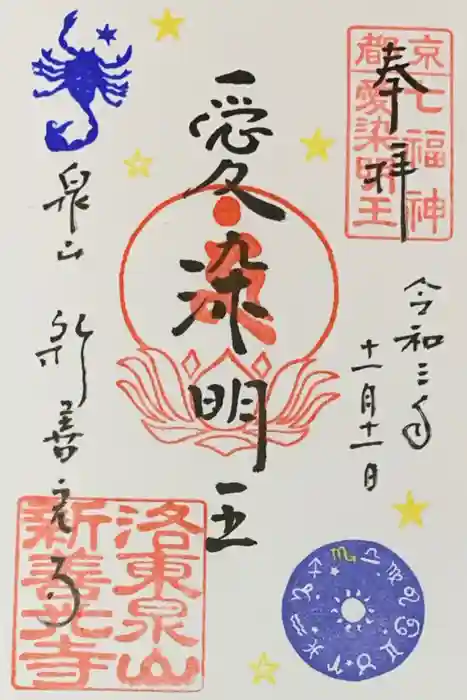 奉拝
京都七福神
愛染明王
令和三年
十一月十一日
愛染明王
泉山 新善光寺
洛東泉山
新善光寺